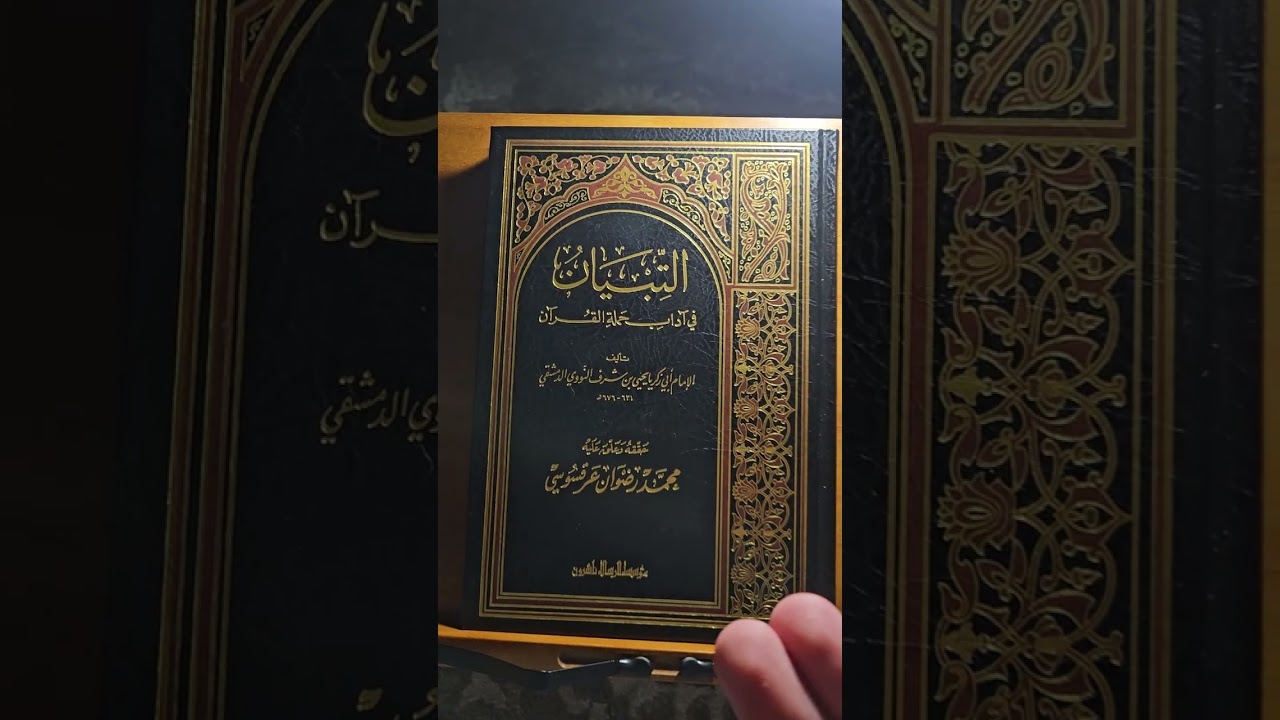 التِّبْيَانُ
في آدابِ حَمَلةِ القُرآن
تأليف
الإمام أبي زكريا يحيى بن شرف النووي الدمشقي
٦٣١ - ٦٧٦هـ
حَقّقَهُ وَعَلّقَ عَلَيْه
محمّد رضوان عرقسُوسي
مؤسسة الرسالة ناشرون